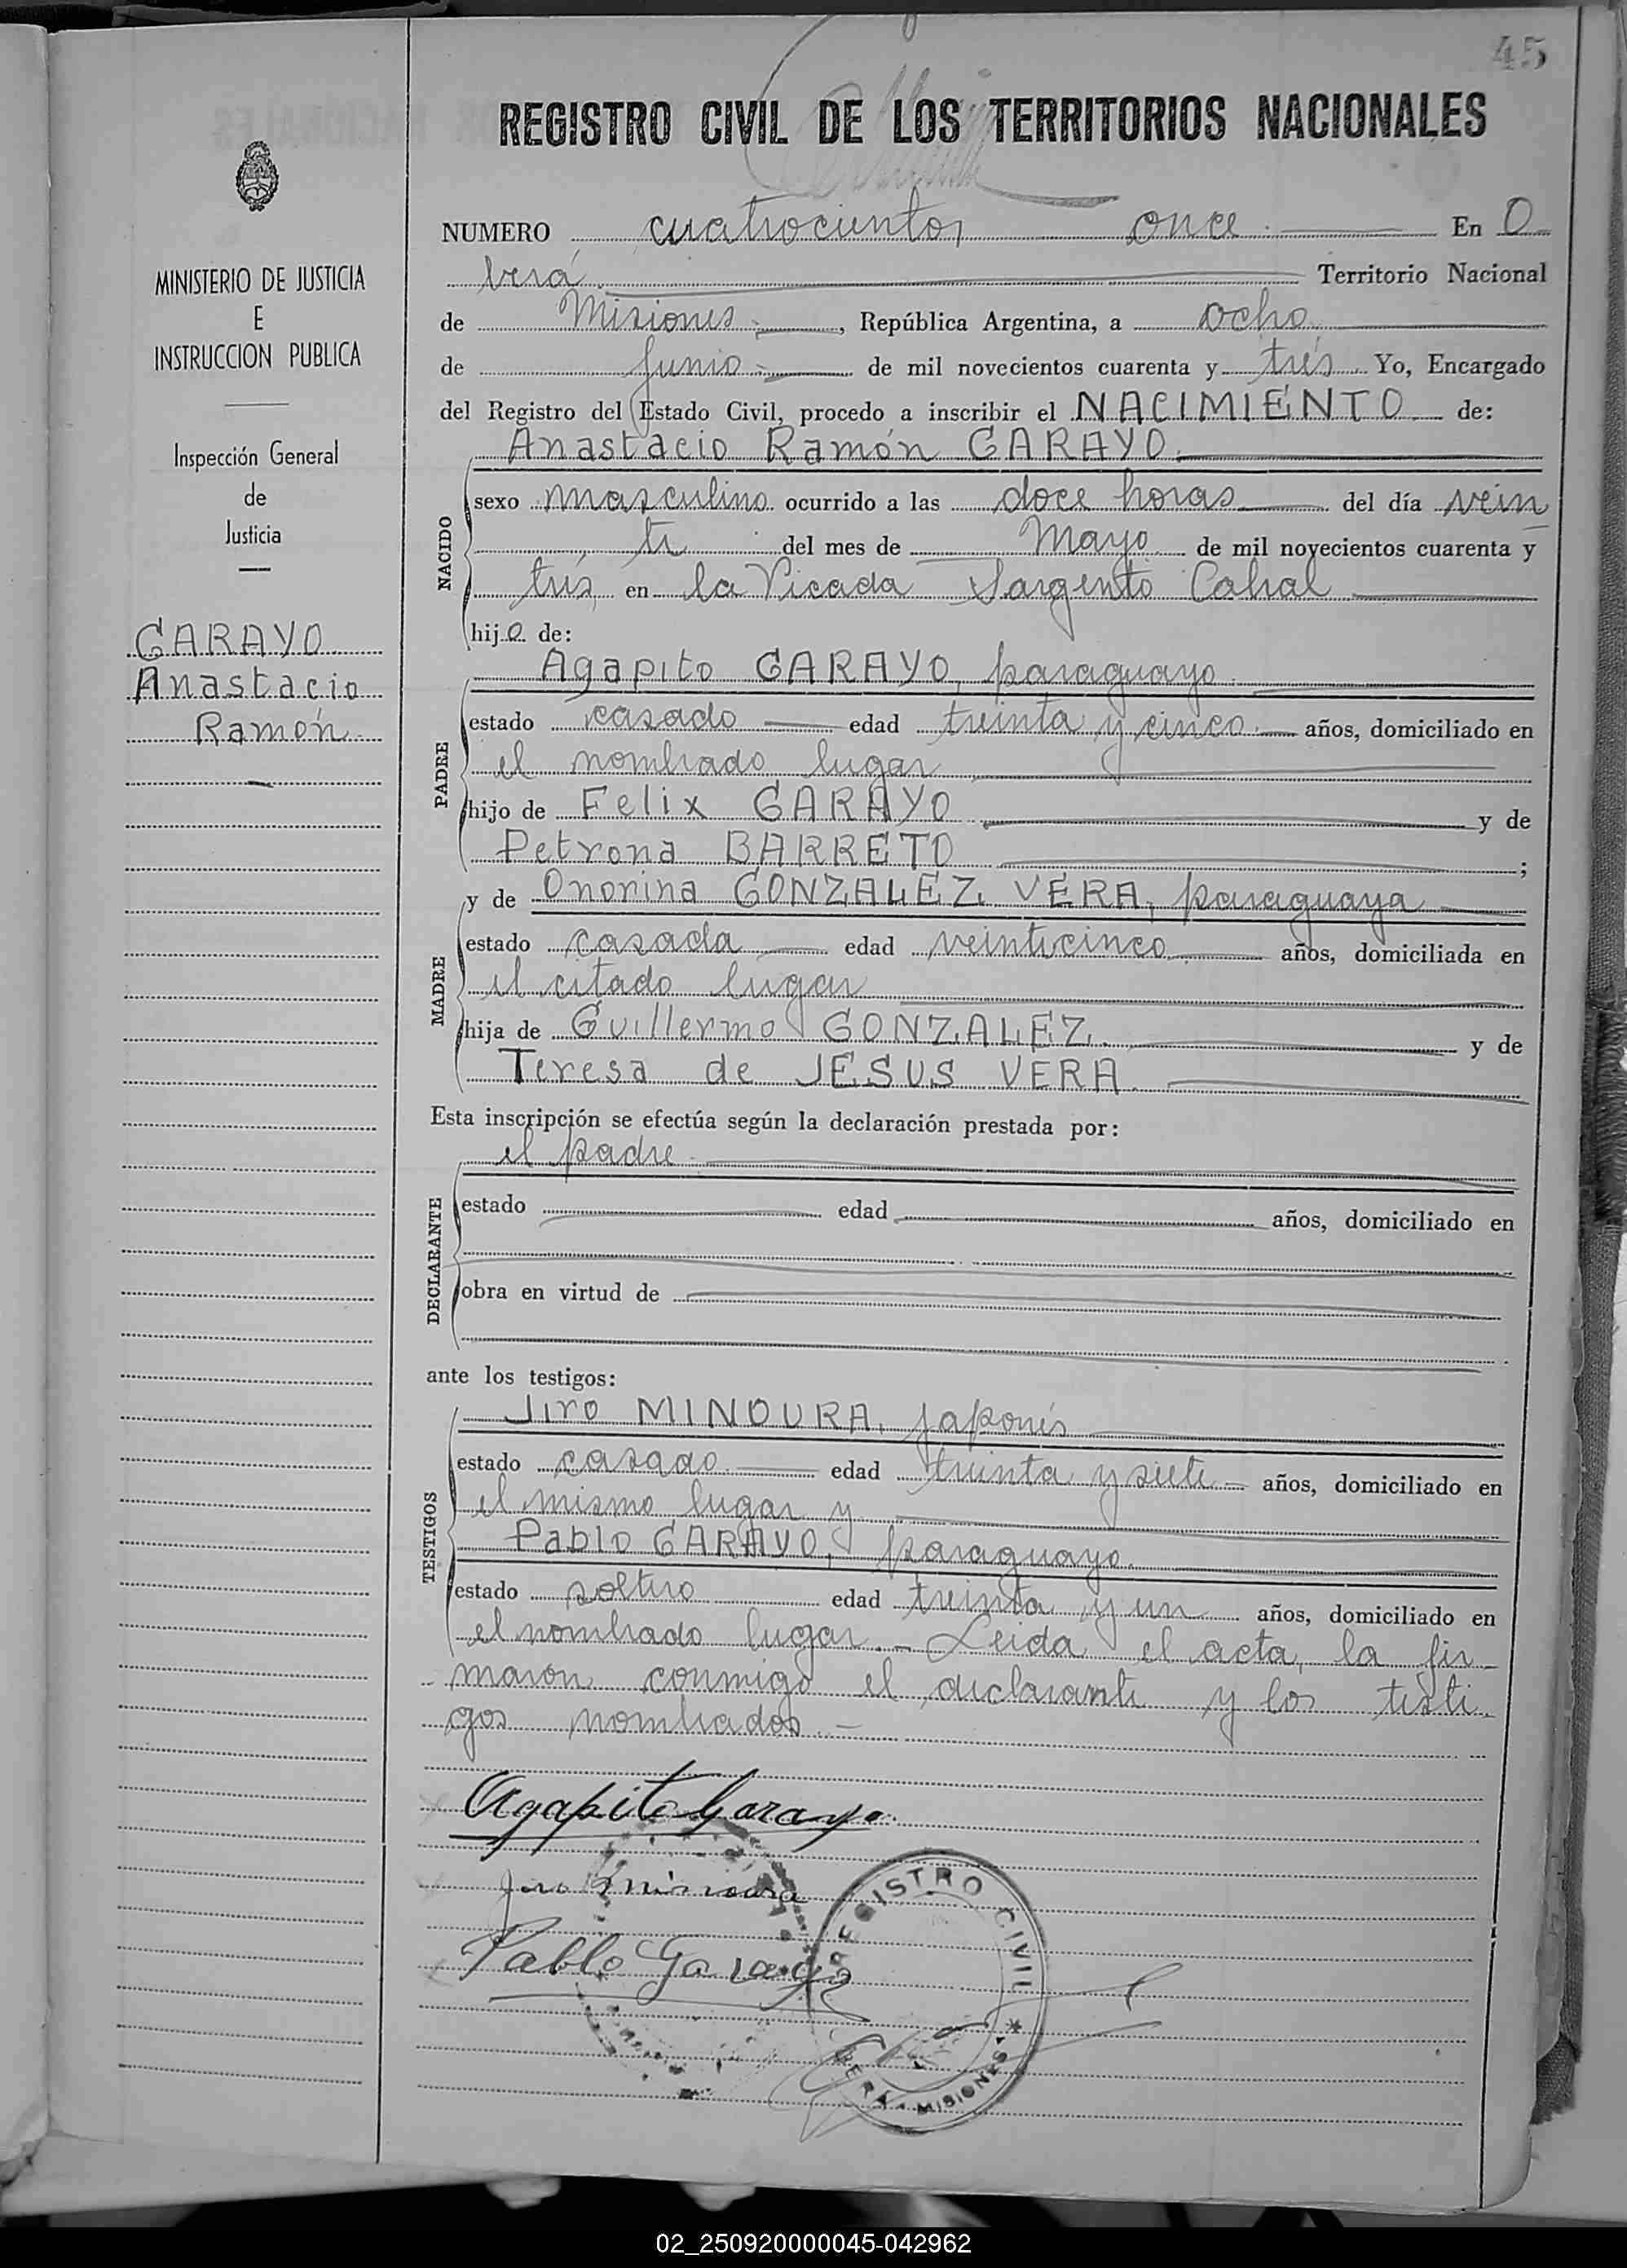 45
REGISTRO CIVIL DE LOS TERRITORIOS NACIONALES
NUMERO cuatrocientos once En O
berá Territorio Nacional
de Misiones, República Argentina, a ocho
de Junio de mil novecientos cuarenta y tres Yo, Encargado
del Registro del Estado Civil, procedo a inscribir el NACIMIENTO de:
Anastacio Ramón GARAYO.
sexo masculino ocurrido a las doce horas del día vein
ti del mes de Mayo de mil novecientos cuarenta y
trés, en la Picada Sargento Cabral
hijo de:
NACIDO
Agapito GARAYO, paraguayo
estado casado edad treinta y cinco años, domiciliado en
el nombrado lugar
hijo de Felix GARAYO y de
Petrona BARRETO ;
PADRE
y de Onorina GONZALEZ VERA, paraguaya
estado casada edad veinticinco años, domiciliada en
el citado lugar
hija de Guillermo GONZALEZ. y de
Teresa de JESUS VERA.
MADRE
Esta inscripción se efectúa según la declaración prestada por:
el padre
estado edad años, domiciliado en
obra en virtud de
DECLARANTE
ante los testigos:
Jiro MINOURA, japonés
estado casado edad treinta y siete años, domiciliado en
el mismo lugar y
Pablo GARAYO, paraguayo.
estado soltero edad treinta y un años, domiciliado en
el nombrado lugar.- Leida el acta, la fir-
TESTIGOS
maron conmigo el declarante y los testi
gos nombrados.-
Agapito Garayo
Jiro Minoura
Pablo Garayo
REGISTRO CIVIL
OBERA - MISIONES
MINISTERIO DE JUSTICIA
E
INSTRUCCION PUBLICA
Inspección General
de
Justicia
GARAYO
Anastacio
Ramón
02_250920000045-042962